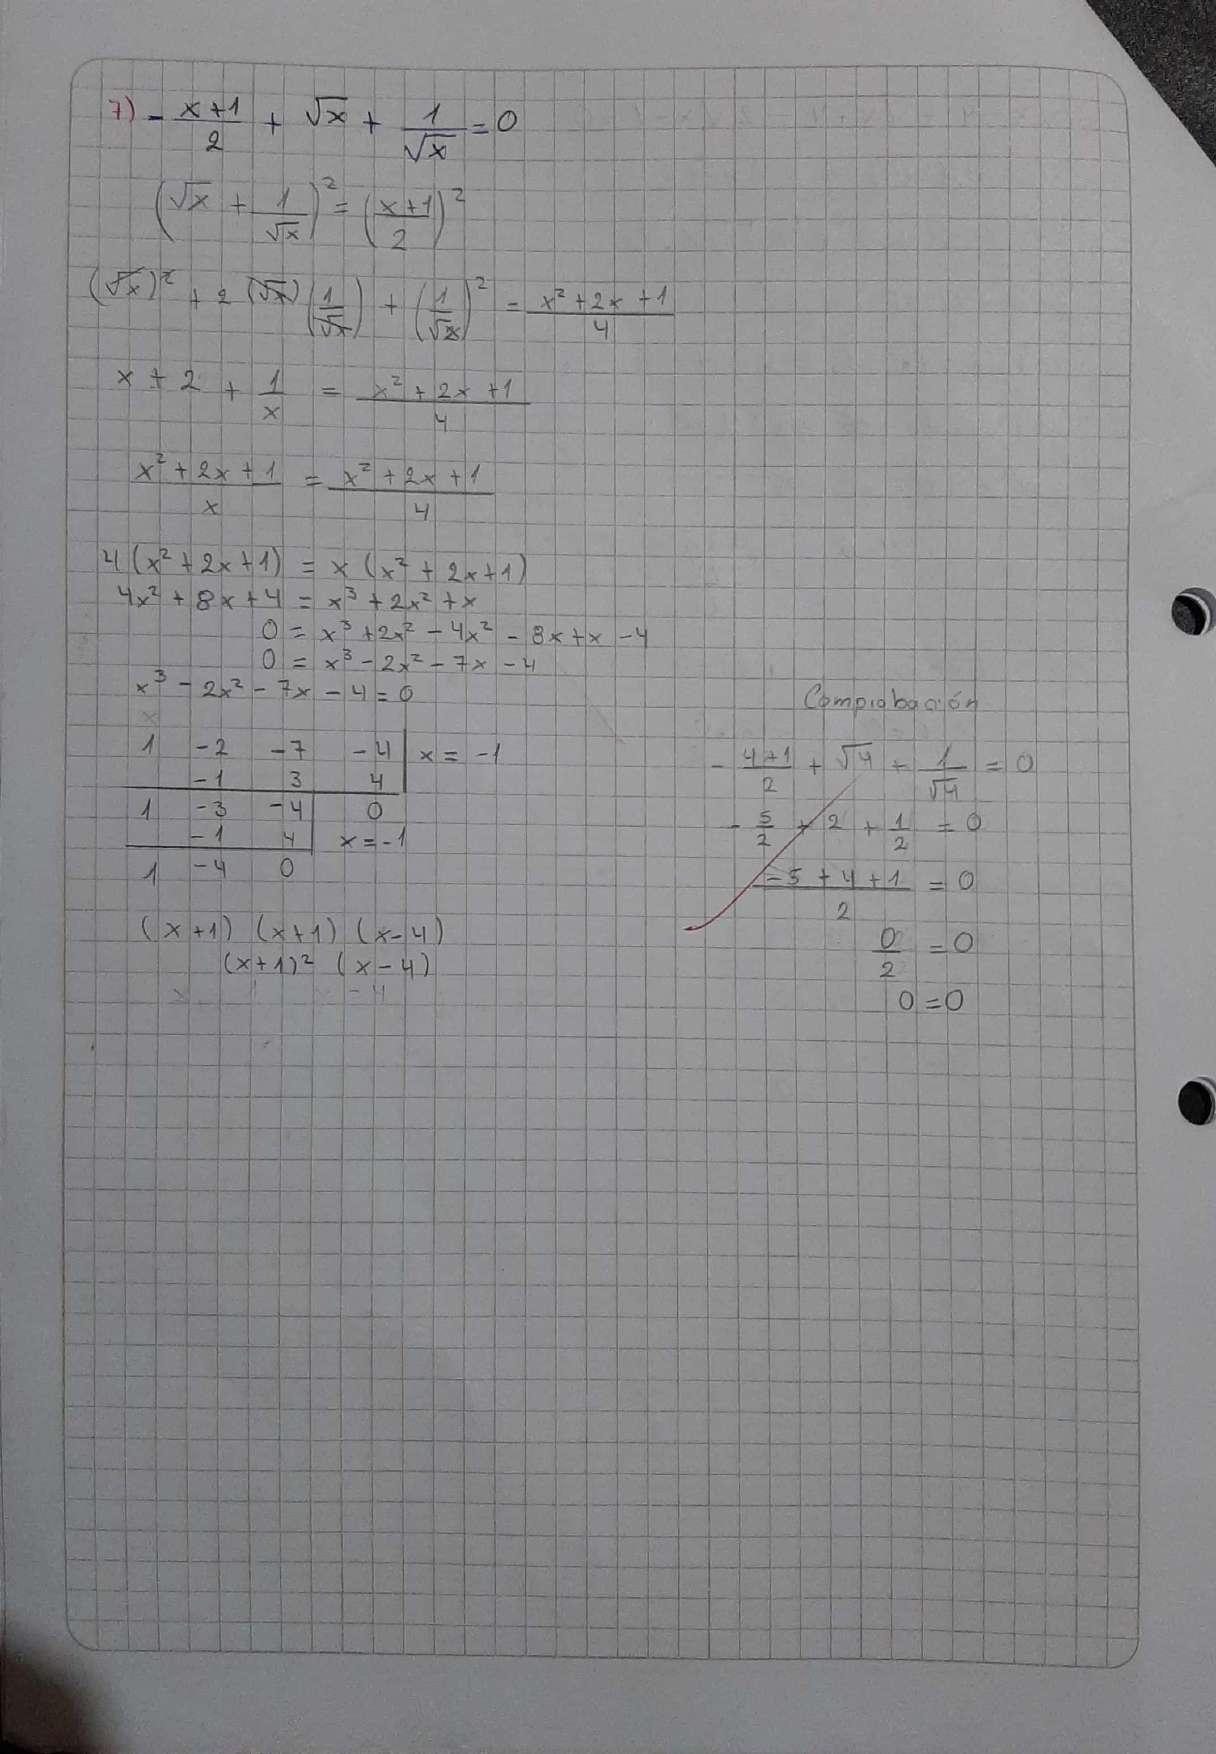 7) - (x+1)/2 + √x + 1/√x = 0
(√x + 1/√x)² = ((x+1)/2)²
(√x)² + 2(√x)(1/√x) + (1/√x)² = (x² + 2x + 1)/4
x + 2 + 1/x = (x² + 2x + 1)/4
(x² + 2x + 1)/x = (x² + 2x + 1)/4
4(x² + 2x + 1) = x(x² + 2x + 1)
4x² + 8x + 4 = x³ + 2x² + x
0 = x³ + 2x² - 4x² - 8x + x - 4
0 = x³ - 2x² - 7x - 4
x³ - 2x² - 7x - 4 = 0
1 -2 -7 -4 | x = -1
-1 3 4
1 -3 -4 0
-1 4 | x = -1
1 -4 0
(x+1) (x+1) (x-4)
(x+1)² (x-4)
Comprobación
- (4+1)/2 + √4 + 1/√4 = 0
- 5/2 + 2 + 1/2 = 0
(-5 + 4 + 1)/2 = 0
0/2 = 0
0 = 0